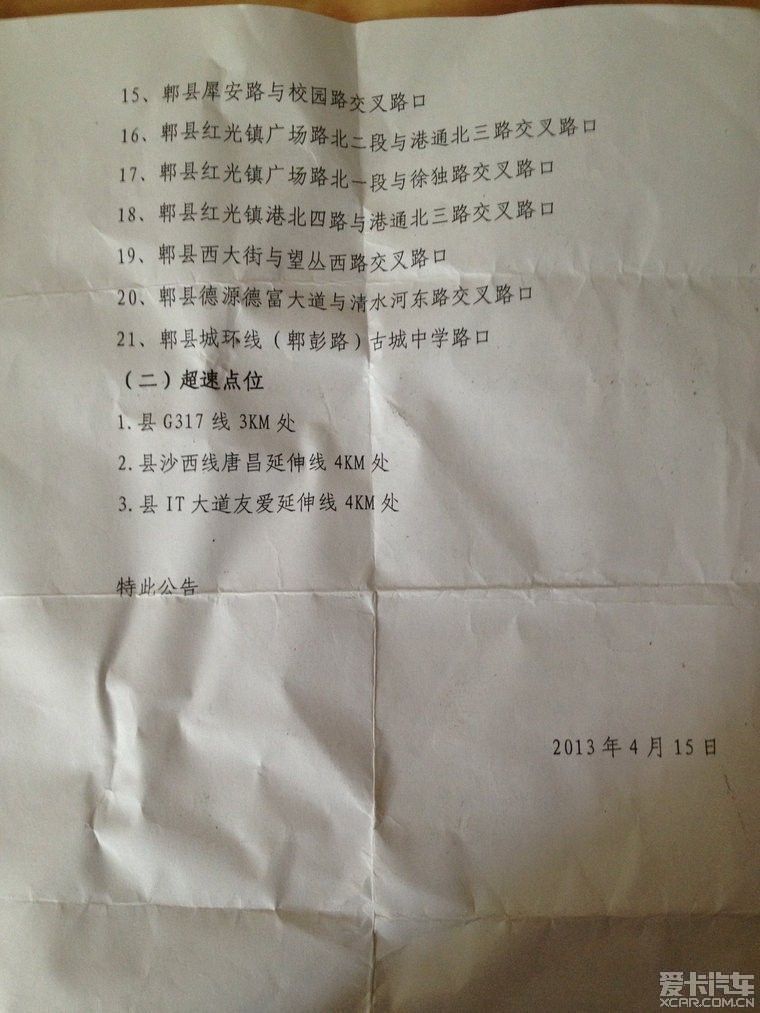 15、郫县犀安路与校园路交叉路口
16、郫县红光镇广场路北二段与港通北三路交叉路口
17、郫县红光镇广场路北一段与徐独路交叉路口
18、郫县红光镇港北四路与港通北三路交叉路口
19、郫县西大街与望丛西路交叉路口
20、郫县德源德富大道与清水河东路交叉路口
21、郫县城环线（郫彭路）古城中学路口
（二）超速点位
1.县G317线3KM处
2.县沙西线唐昌延伸线4KM处
3.县IT大道友爱延伸线4KM处
特此公告
2013年4月15日
爱卡汽车
XCAR.COM.CN